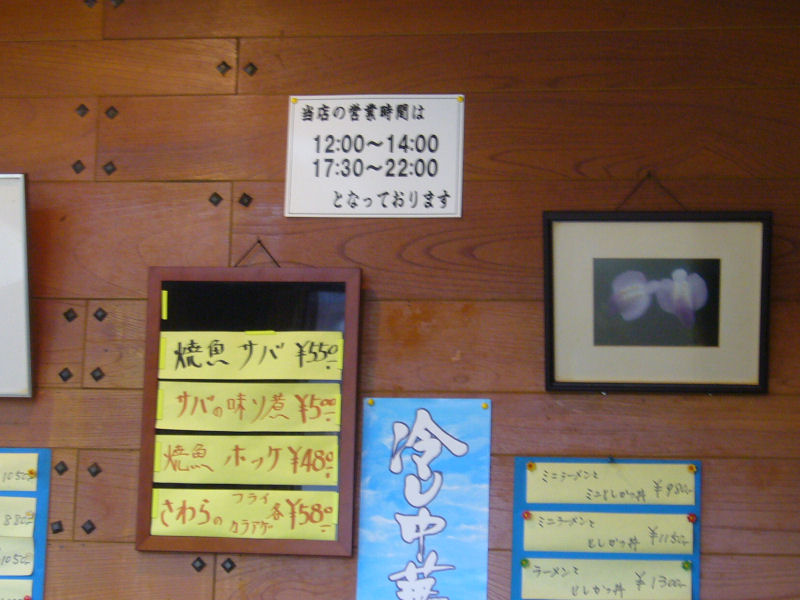 当店の営業時間は
12:00〜14:00
17:30〜22:00
となっております
焼魚 サバ ¥550
サバの味ソ煮 ¥500
焼魚 ホッケ ¥480
さわらの フライ カラアゲ 各 ¥580
冷し中華
1050
880
1050
ミニラーメンと
ミニとんかつ丼 ¥980
ミニラーメンと
とんかつ丼 ¥1150
ラーメンと
とんかつ丼 ¥1300